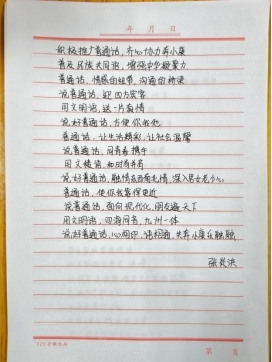 年 月 日
积极推广普通话，齐心协力奔小康
普及民族共同语，增强中华凝聚力
普通话，情感的纽带，沟通的桥梁
说普通话，迎四方宾客
用文明语，送一片真情
说好普通话，方便你我他
普通话，让生活精彩，让社会温馨
说普通话，同青春携手
用文明语，和时有并肩
说好普通话，融情在
普通话，使你我靠得更近
说普通话，面向现代化，朋友遍天下
用文明话，四海同音，九州一体
说好普通话，心相印，语相通，共奔小康乐融融
张炎洪
第 页